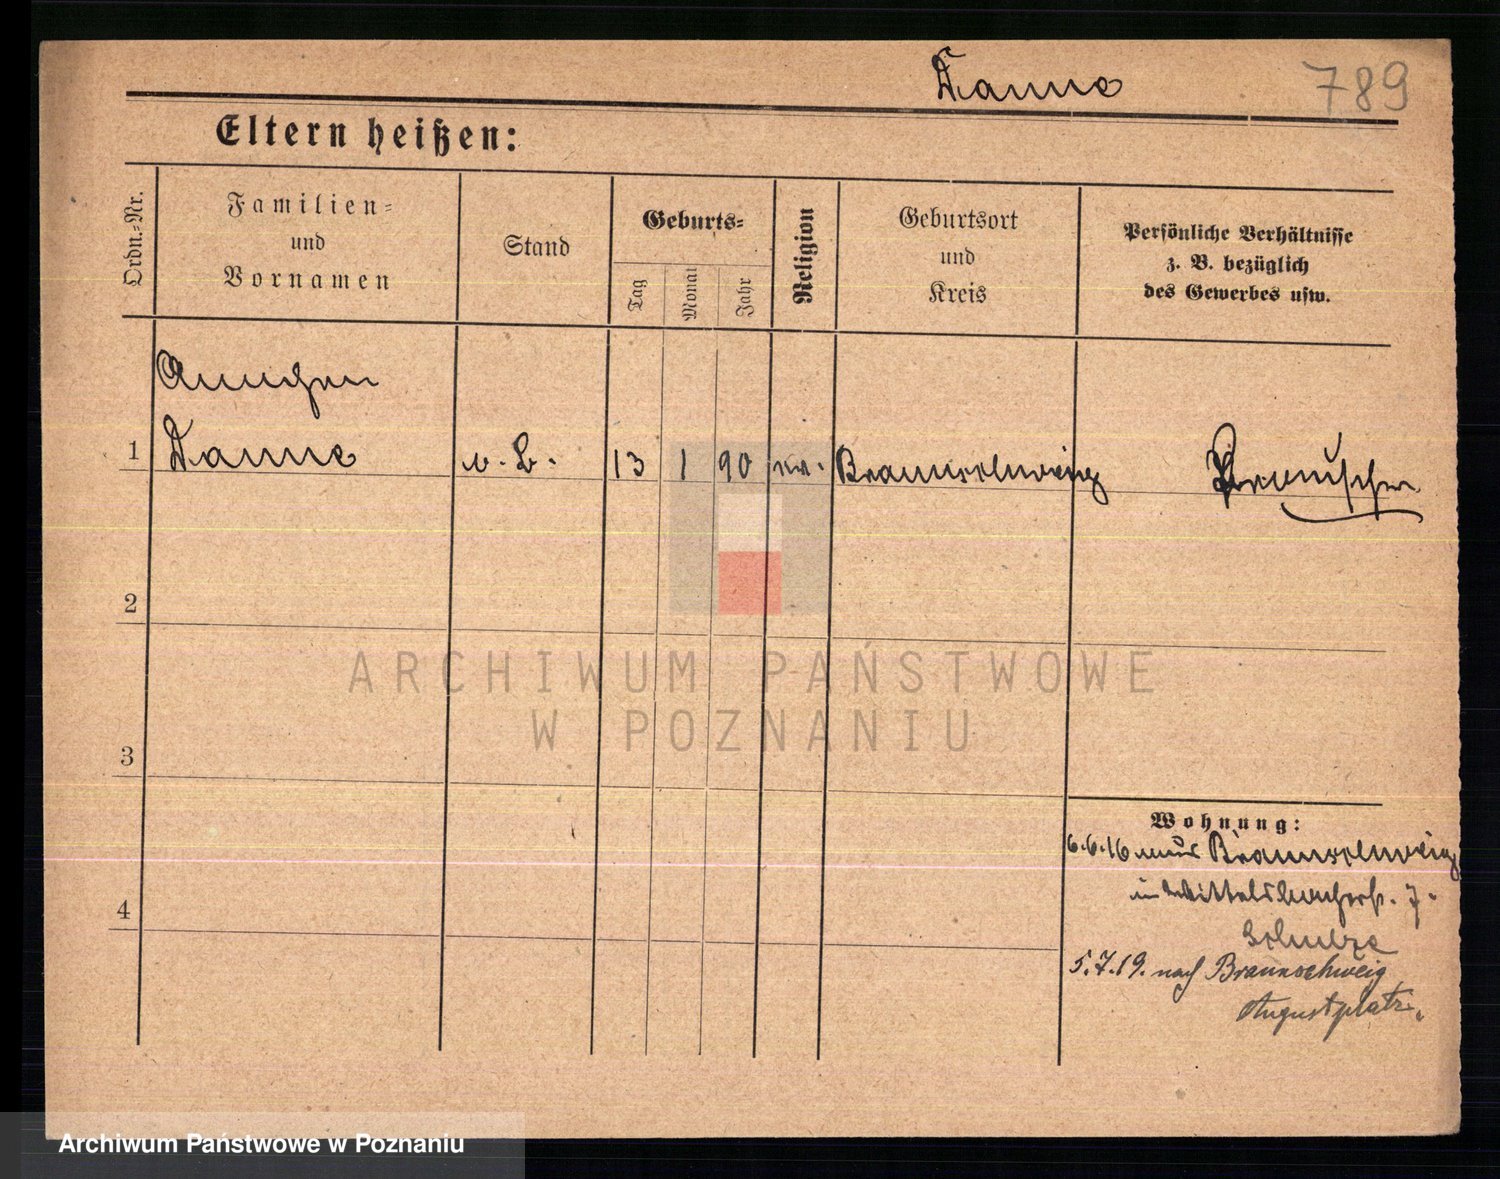 Danne
789
Eltern heißen:
Ordn.-Nr.
Familien-
und
Vornamen
Stand
Geburts-
Tag
Monat
Jahr
Religion
Geburtsort
und
Kreis
Persönliche Verhältnisse
z. B. bezüglich
des Gewerbes usw.
Annchen
1 Danne o. B. 13 1 90 ev. Braunschweig
2
ARCHIWUM PAŃSTWOWE
W POZNANIU
3
Wohnung:
6.6.16 aus Braunschweig
in Wittelsbacherstr. 7.
Schulze
4
5.7.19. nach Braunschweig
Augustplatz
Archiwum Państwowe w Poznaniu